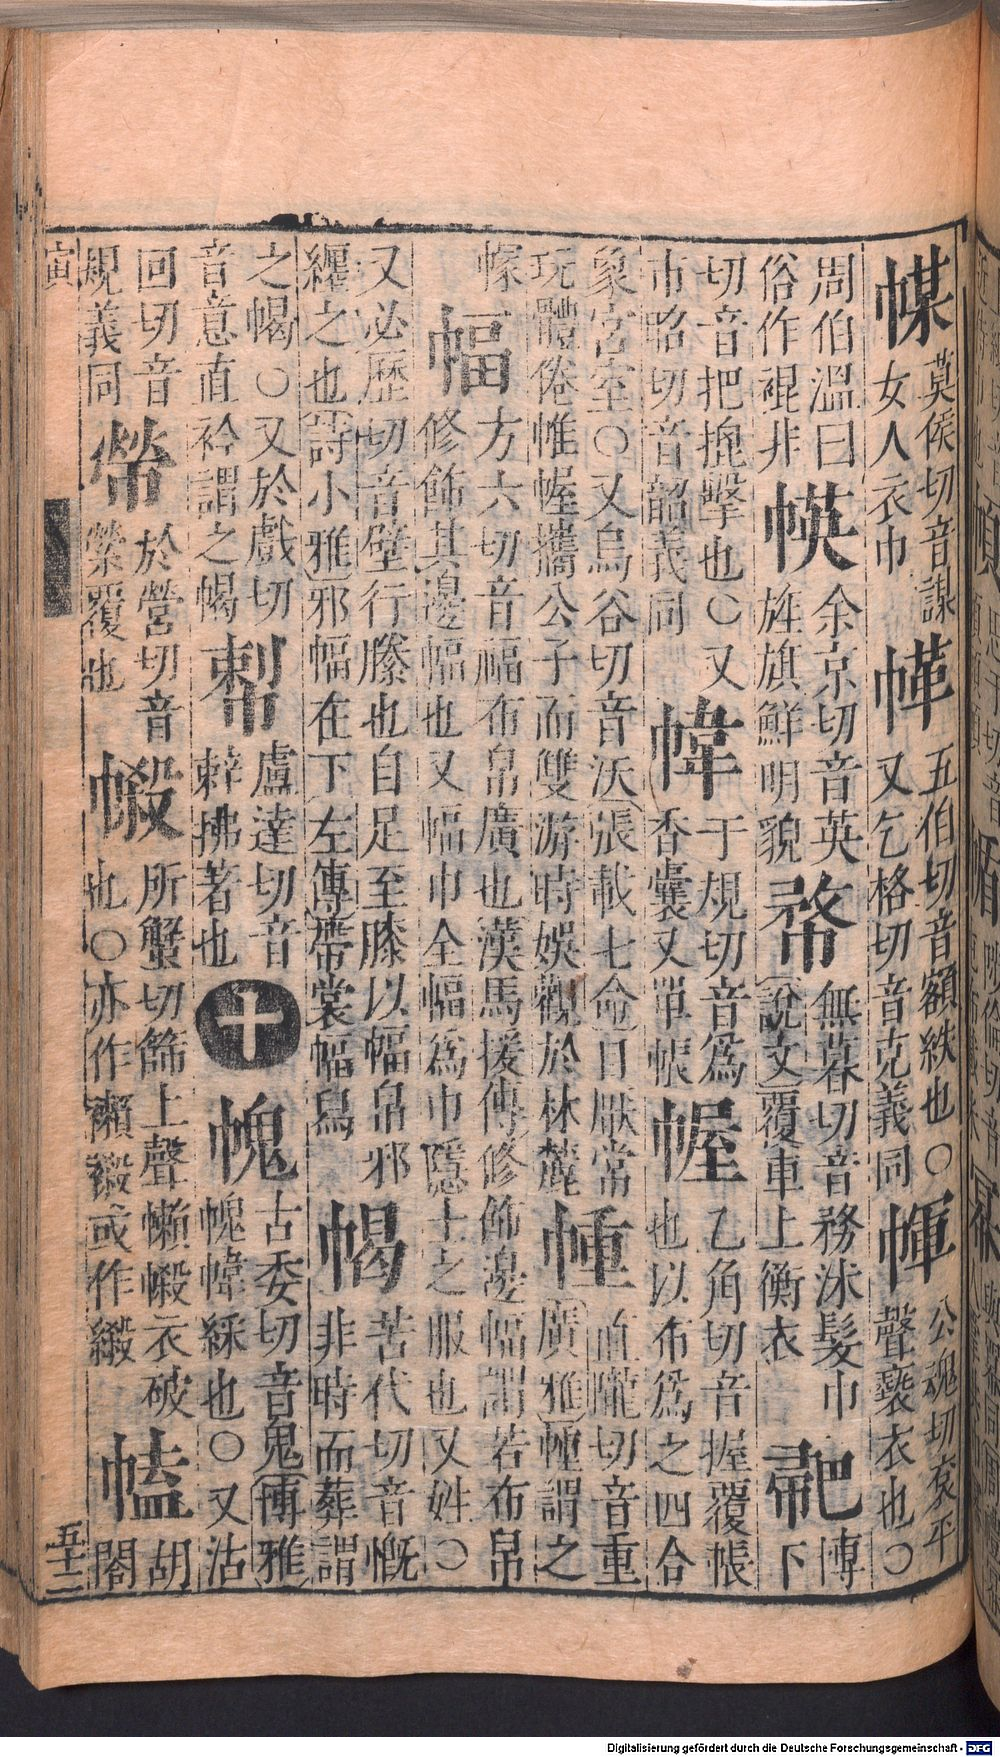 𢃱 莫侯切音謀
女人衣巾 𢂷 五伯切音額紩也〇
又乞格切音克義同 㡓 公魂切袞平
聲褻衣也〇
周伯溫曰
俗作裩非 㡕 余京切音英
旌旗鮮明貌 帗 無暮切音務沭髮巾
說文覆車上衡衣 帊 博下
切音把㨽擊也〇又
巿詺切音韶義同 幃 于規切音爲
香囊又單帳 幄 乙角切音握覆帳
也以布爲之四合
象宮室〇又烏谷切音沃張載七命曰厭常
玩體倦惟幄攜公子而雙游時娛觀於林麓 㡖 直隴切音重
廣雅㡖謂之
幏 幅 方六切音福布帛廣也漢馬援傳修飾邊幅謂若布帛
修飾其邊幅也又幅巾全幅爲巾隱士之服也又姓〇
又必歷切音壁行縢也自足至膝以幅帛邪
纏之也詩小雅邪幅在下左傳帶裳幅舄 㡘 苦代切音慨
非時而葬謂
之㡘〇又於戲切
音意直衿謂之㡘 㡝 盧達切音
辢拂著也 十 㡡 古委切音鬼博雅
㡡幃綵也〇又沽
回切音
規義同 㡞 於營切音
縈覆也 㡜 所蟹切篩上聲㡜衣破
也〇亦作襰䙛或作繺 㡧 胡
閤
寅
五十二
Digitalisierung gefördert durch die Deutsche Forschungsgemeinschaft - DFG